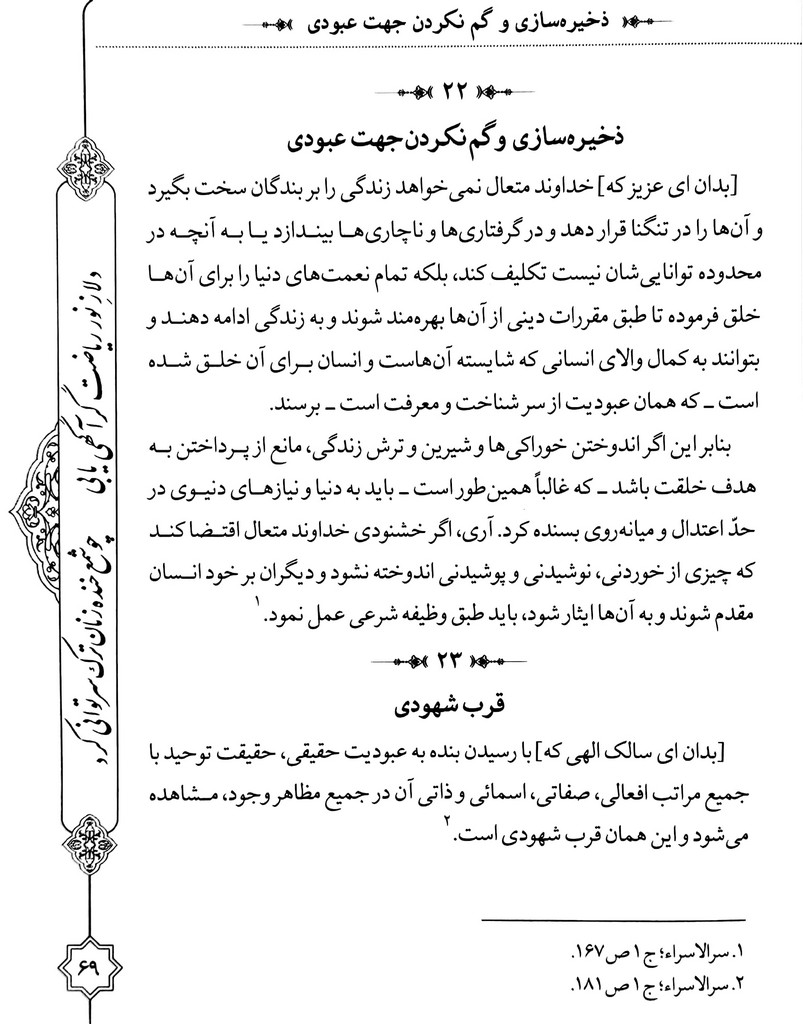 ذخیره‌سازی و گم نکردن جهت عبودی
۲۲
ذخیره‌سازی و گم نکردن جهت عبودی
[بدان ای عزیز که] خداوند متعال نمی‌خواهد زندگی را بر بندگان سخت بگیرد
و آن‌ها را در تنگنا قرار دهد و در گرفتاری‌ها و ناچاری‌ها بیندازد یا به آنچه در
محدوده توانایی‌شان نیست تکلیف کند، بلکه تمام نعمت‌های دنیا را برای آن‌ها
خلق فرموده تا طبق مقررات دینی از آن‌ها بهره‌مند شوند و به زندگی ادامه دهند و
بتوانند به کمال والای انسانی که شایسته آن‌هاست و انسان برای آن خلق شده
است ـ که همان عبودیت از سر شناخت و معرفت است ـ برسند.
بنابر این اگر اندوختن خوراکی‌ها و شیرین و ترش زندگی، مانع از پرداختن به
هدف خلقت باشد ـ که غالباً همین‌طور است ـ باید به دنیا و نیازهای دنیوی در
حدّ اعتدال و میانه‌روی بسنده کرد. آری، اگر خشنودی خداوند متعال اقتضا کند
که چیزی از خوردنی، نوشیدنی و پوشیدنی اندوخته نشود و دیگران بر خود انسان
مقدم شوند و به آن‌ها ایثار شود، باید طبق وظیفه شرعی عمل نمود.۱
۲۳
قرب شهودی
[بدان ای سالک الهی که] با رسیدن بنده به عبودیت حقیقی، حقیقت توحید با
جمیع مراتب افعالی، صفاتی، اسمائی و ذاتی آن در جمیع مظاهر وجود، مشاهده
می‌شود و این همان قرب شهودی است.۲
۱. سرالاسراء؛ ج ۱ ص ۱۶۷.
۲. سرالاسراء؛ ج ۱ ص ۱۸۱.
دلا ز نور ریاضت گر آگهی یابی
چو شمع خنده زنان ترک سر توانی کرد
۶۹